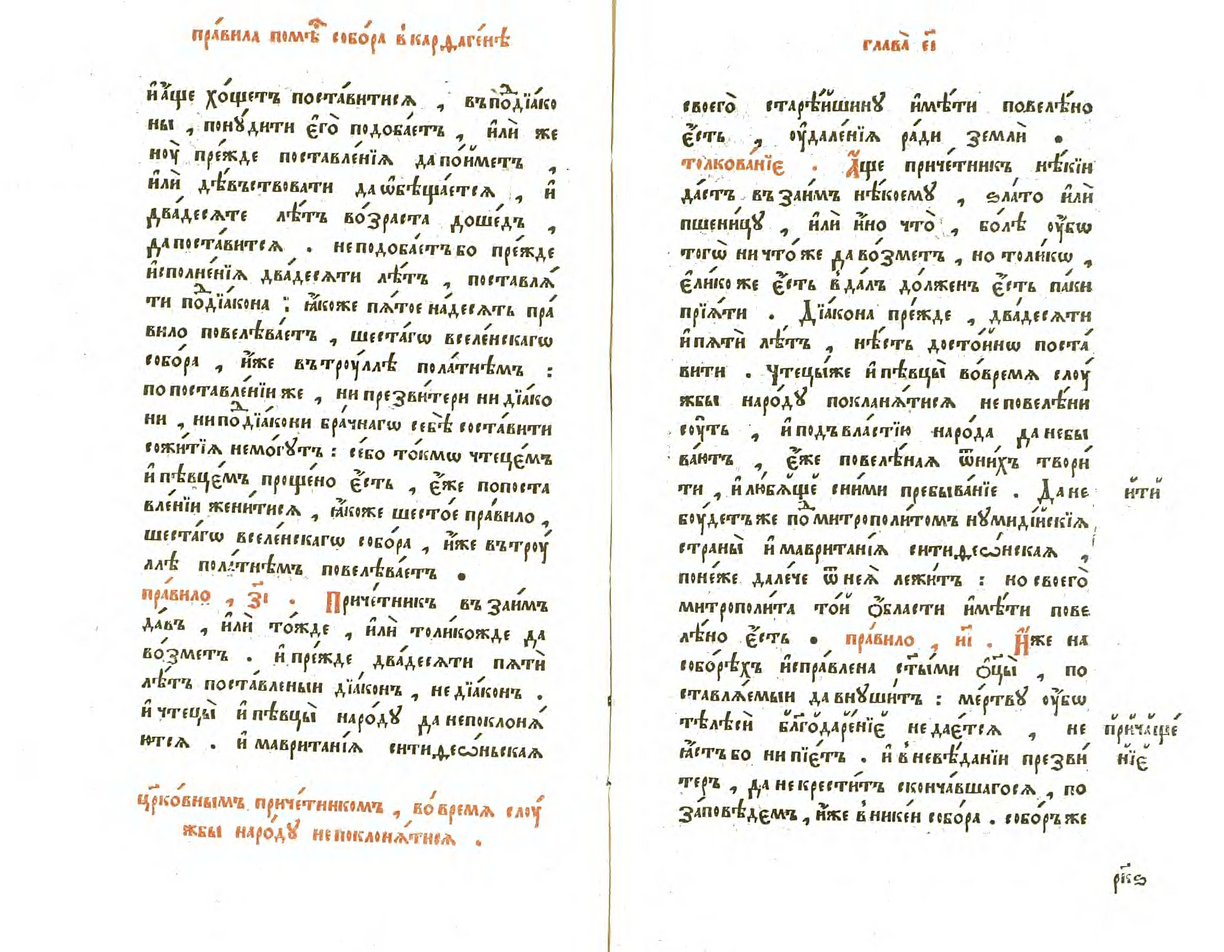 пра́вила помѣ́ⷭ собо́ра в҆карѳаге́нѣ
и҆а҆́ще хо́щетъ поста́витисѧ , въпо́ⷣїѧко
ны̀ , пону́дити є҆го̀ подоба́етъ , и҆лѝ же
ноꙋ̀ пре́жде поставле́нїѧ да по́йметъ ,
и҆лѝ дѣ́въствовати да ѡ҆бѣща́етсѧ , и҆
два́десѧте лѣ́тъ во́зраста доше́дъ ,
да поста́витсѧ . не подоба́етъ бо пре́жде
и҆сполне́нїѧ два́десѧти лѣ́тъ , поставлѧ́
ти по́ⷣїѧкона : ꙗ҆́коже пѧ́тое на́десѧть пра́
вило повелѣва́етъ , шеста́гѡ вселе́нскагѡ
собо́ра , и҆́же въ трꙋ́ллѣ пола́тнѣмъ :
по поставле́нїи же , ни презви́тери ни дїа́ко
ни , ни по́ⷣїѧкони бра́чнагѡ себѣ̀ соста́вити
сожи́тїѧ немо́гутъ : се́бо то́кмѡ чтеце́мъ
и҆ пѣвце́мъ проще́но є҆́сть , є҆́же по поста
вле́нїи жени́тисѧ , ꙗ҆́коже шесто́е пра́вило ,
шеста́гѡ вселе́нскагѡ собо́ра , и҆́же въ трꙋ́
ллѣ пола́тнѣмъ повелѣва́етъ .
пра́вило , з҃і . Приче́тникъ въ за́имъ
да́въ , и҆лѝ то́жде , и҆лѝ толи́кожде да
во́зметъ . и҆ пре́жде два́десѧти пѧтѝ
лѣ́тъ поста́вленыи дїа́конъ , не дїа́конъ .
и҆ чтецы̀ и҆ пѣвцы̀ наро́ду да непоклонѧ́
ютсѧ . и҆ маврита́нїѧ ситиѳесѡ́ньскаѧ
цр҃ко́внымъ приче́тникомъ , во́ времѧ слоу́
жбы наро́ду непоклонѧ́тисѧ .
глава̀ є҃і
своего̀ старѣ́йшину и҆мѣ́ти повеле́но
є҆́сть , ᲂу҆дале́нїѧ ра́ди землѝ .
толкова́нїє . А҆́ще приче́тникъ нѣ́кїи
да́стъ въ за́имъ нѣ́коему , ѕла́то и҆лѝ
пшени́цу , и҆лѝ и҆́но что̀ , бо́лѣ ᲂу҆́бѡ
тогѡ̀ ни что́ же да во́зметъ , но толи́кѡ ,
є҆ли́ко же є҆́сть в҆да́лъ до́лженъ є҆́сть па́ки
прїѧ́ти . Дїа́кона пре́жде , два́десѧти
и҆ пѧтѝ лѣ́тъ , нѣ́сть досто́йнѡ поста́
вити . Чтецы́же и҆ пѣвцы̀ во́времѧ слоу́
жбы наро́ду покланѧ́тисѧ не повелѣ́ни
соу́ть , и҆ подъ вла́стїю наро́да да небы
ва́ютъ , є҆́же повелѣ́наѧ ѿ ни́хъ твори́
ти , и҆ любѧ́ще сни́ми пребыва́нїе . Да не
и҆тѝ
боу́детъ же по́ⷣ митрополи́томъ нумиді́йскїѧ
страны̀ и҆ маврита́нїѧ ситиѳесѡ́нскаѧ ,
поне́же дале́че ѿ неѧ̀ лежи́тъ : но своего̀
митрополи́та то́й ѻ҆́бласти и҆мѣ́ти пове
лѣ́но є҆́сть . пра́вило , и҃і . И҆́же на
собо́рѣхъ и҆спра́влена ст҃ы́ми ѻ҆ц҃ы̀ , по
ставлѧ́емыи да внуши́тъ : ме́ртву ᲂу҆́бѡ
тѣ́лесѝ бл҃годаре́нїе не дае́тсѧ , не
при́чаще́
нїе
ꙗ҆́стъ бо ни пїе́тъ . и҆ в҆невѣ́данїи презви́
теръ , да не крести́тъ сконча́вшагосѧ , по
за́повѣдемъ , и҆́же в҆ нике́и собо́ра . собо́ръ же
рк҃ѕ